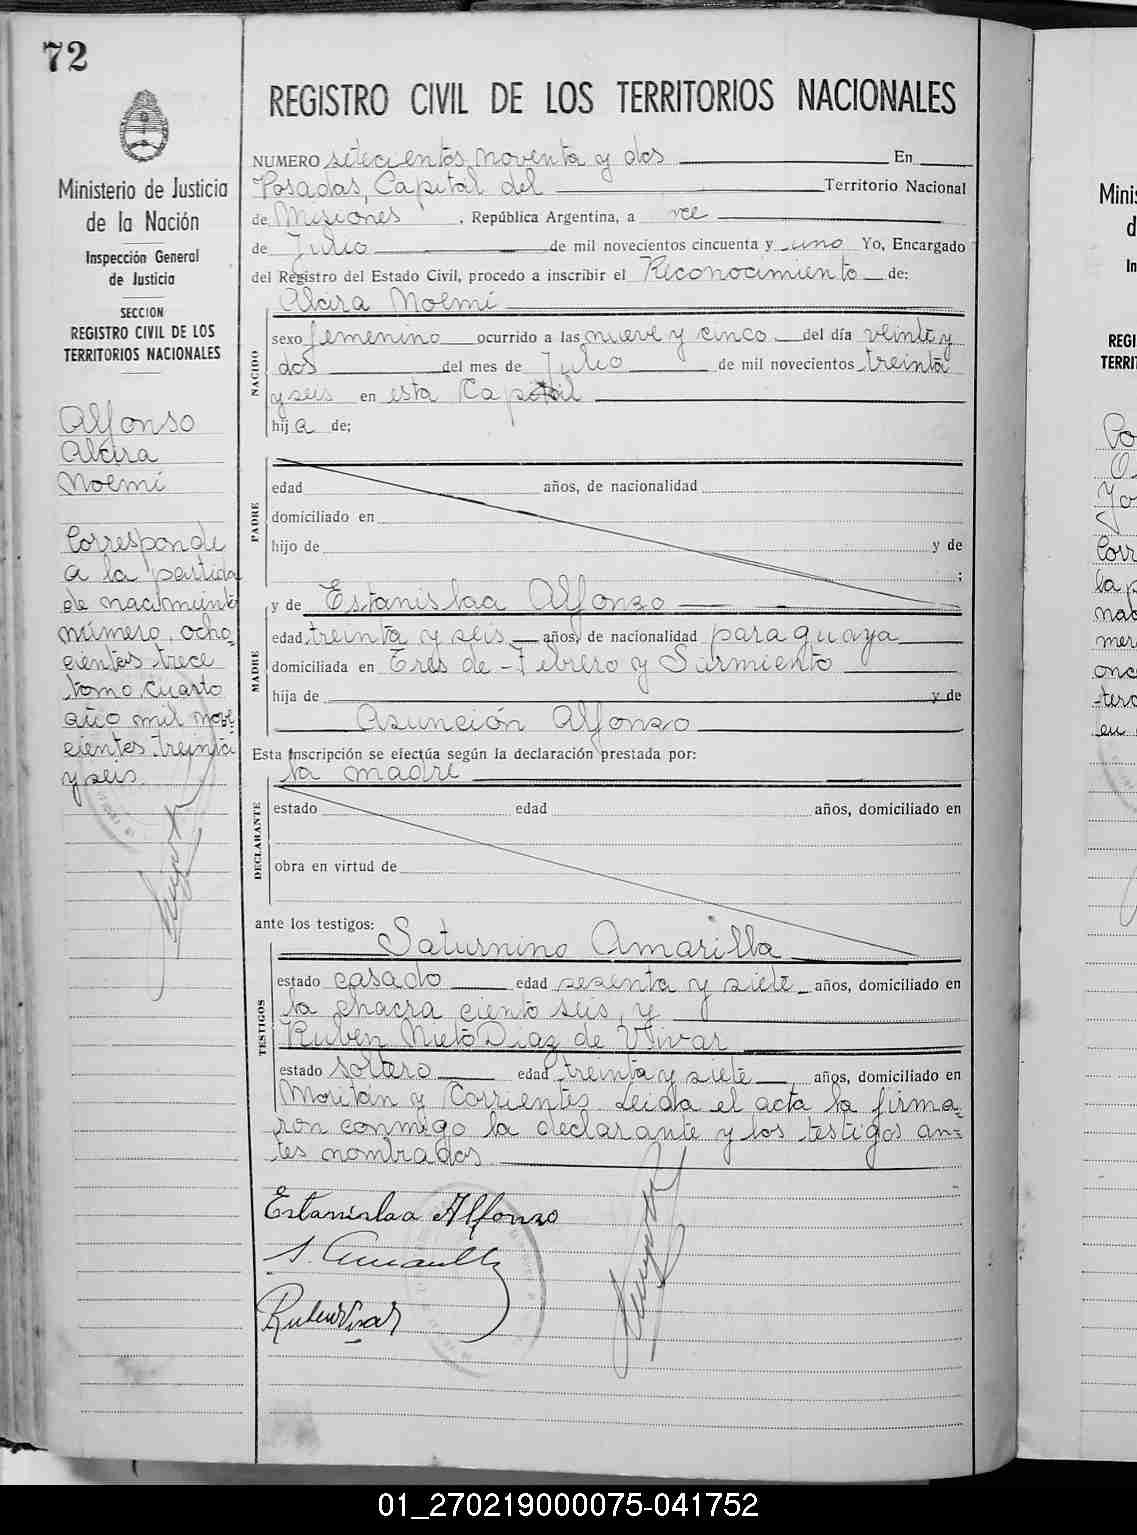 72
Ministerio de Justicia
de la Nación
Inspección General
de Justicia
SECCION
REGISTRO CIVIL DE LOS
TERRITORIOS NACIONALES
Alfonso
Alcira
Noemí
Corresponde
a la partida
de nacimiento
número, ocho-
cientos trece
tomo cuarto
año mil nove-
cientos treinta
y seis.
REGISTRO CIVIL DE LOS TERRITORIOS NACIONALES
NUMERO setecientos noventa y dos En
Posadas, Capital del Territorio Nacional
de Misiones, República Argentina, a
de Julio de mil novecientos cincuenta y uno Yo, Encargado
del Registro del Estado Civil, procedo a inscribir el Reconocimiento de:
Alcira Noemí
NACIDO
sexo femenino ocurrido a las nueve y cinco del día veinte y
dos del mes de Julio de mil novecientos treinta
y seis en esta Capital
hija de;
PADRE
edad años, de nacionalidad
domiciliado en
hijo de y de
;
y de Estanislaa Alfonzo
MADRE
edad treinta y seis años, de nacionalidad paraguaya
domiciliada en Tres de Febrero y Sarmiento
hija de y de
Asunción Alfonzo
Esta inscripción se efectúa según la declaración prestada por:
la madre
DECLARANTE
estado edad años, domiciliado en
obra en virtud de
ante los testigos:
Saturnino Amarilla
TESTIGOS
estado casado edad sesenta y siete años, domiciliado en
la chacra ciento seis, y
Ruben Nieto Diaz de Vivar
estado soltero edad treinta y siete años, domiciliado en
Moritán y Corrientes. Leida el acta la firma-
ron conmigo la declarante y los testigos an-
tes nombrados
Estanislaa Alfonzo
S. Amarilla
Ruben Vivar
01_270219000075-041752